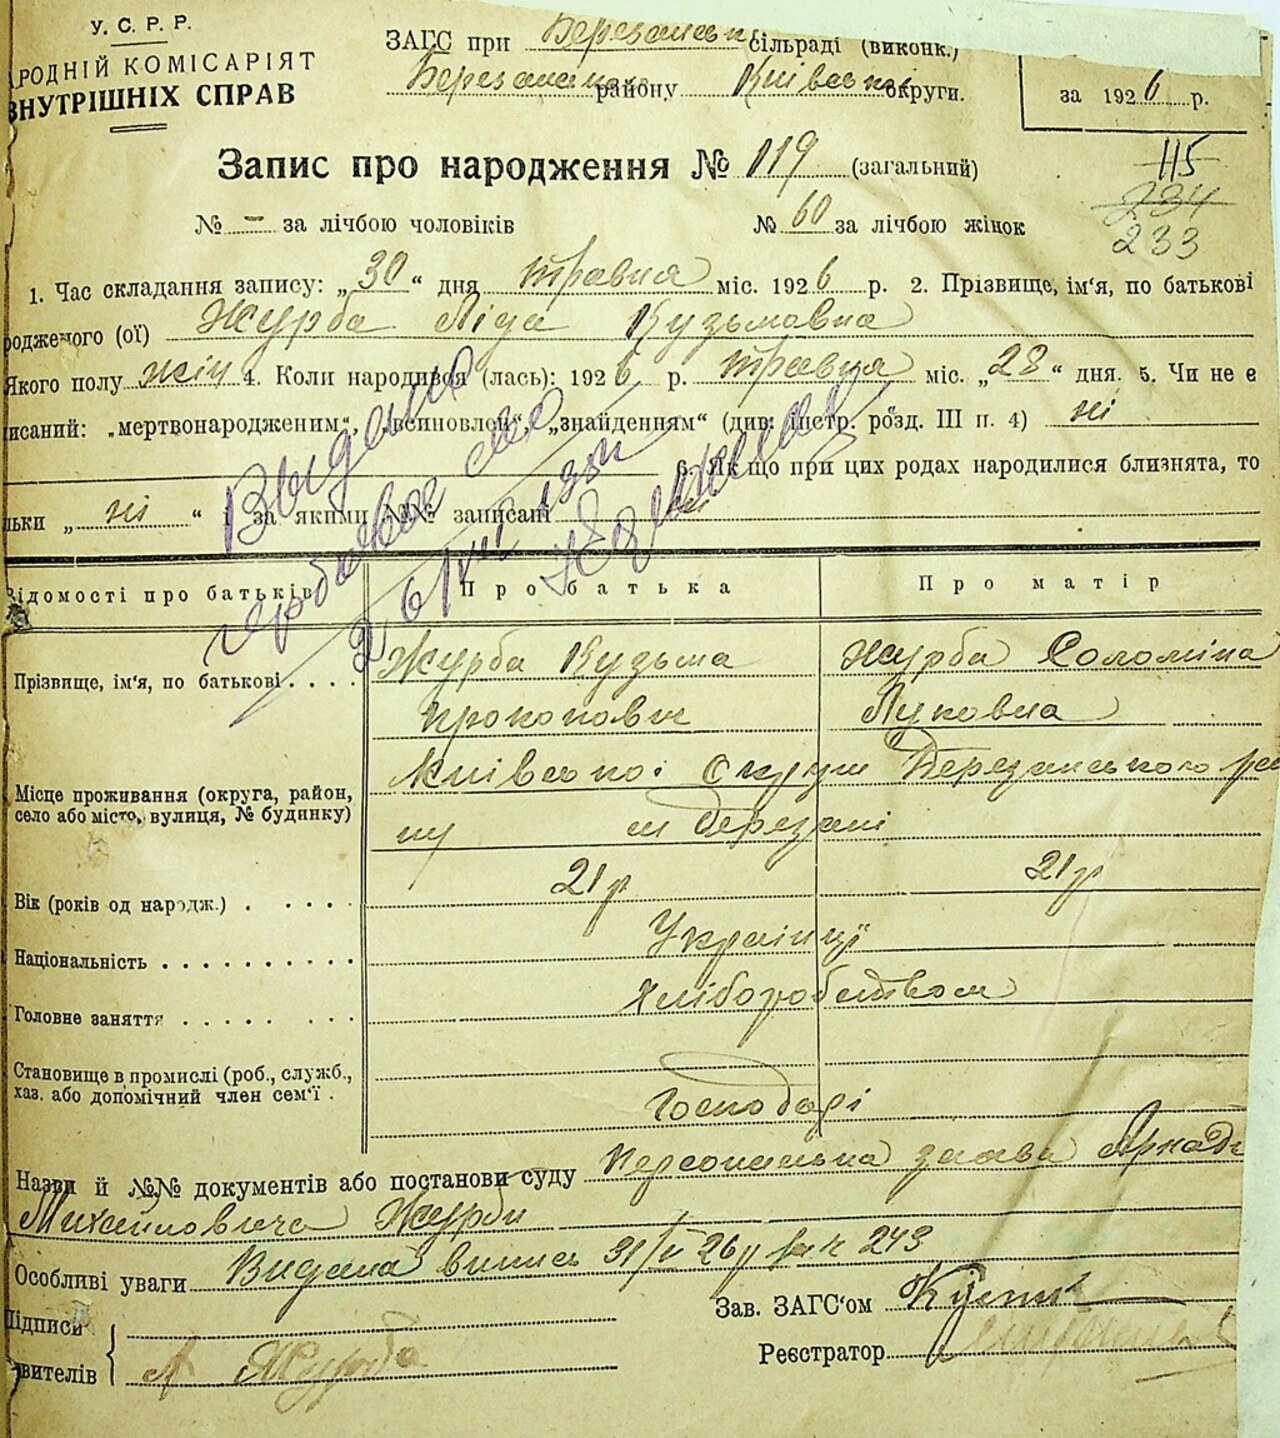 У. С. Р. Р.
РОДНІЙ КОМІСАРІЯТ
ВНУТРІШНІХ СПРАВ
ЗАГС при Березанськ сільраді (виконк.)
Березанськ району Київської округи.
за 1926 р.
Запис про народження № 119 (загальний)
115
234
233
№ – за лічбою чоловіків № 60 за лічбою жінок
1. Час складання запису: „30“ дня травня міс. 1926 р. 2. Прізвище, ім'я, по батькові
родженого (ої) Журба Ліда Кузьмовна
Якого полу жін 4. Коли народився (лась): 1926 р. травня міс. „28“ дня. 5. Чи не є
писаний: „мертвонародженим“, „всиновлен“, „знайденим“ (див. інстр. розд. III п. 4) ні
6. Як що при цих родах народилися близнята, то
льки „ні“ і за якими №№ записані ні
Відомості про батьків Про батька Про матір
Прізвище, ім'я, по батькові . . . . Журба Кузьма Журба Соломіна
Прокопович Луковна
Київської Округи Березанського рай
Місце проживання (округа, район,
село або місто, вулиця, № будинку)
ну м Березані
21 р 21 р
Вік (років од народж.) . . . . .
Українці
Національність . . . . . . . . . .
Хліборобством
Головне заняття . . . . . . . .
Становище в промислі (роб., служб.,
хаз. або допомічний член сем'ї .
Господарі
Назви й №№ документів або постанови суду Персональна заява Аркаді
Михайловича Журби
Особливі уваги Видана випись 31/V 26 р за № 243
Зав. ЗАГС'ом
Підписи
Реєстратор
явителів А Журба